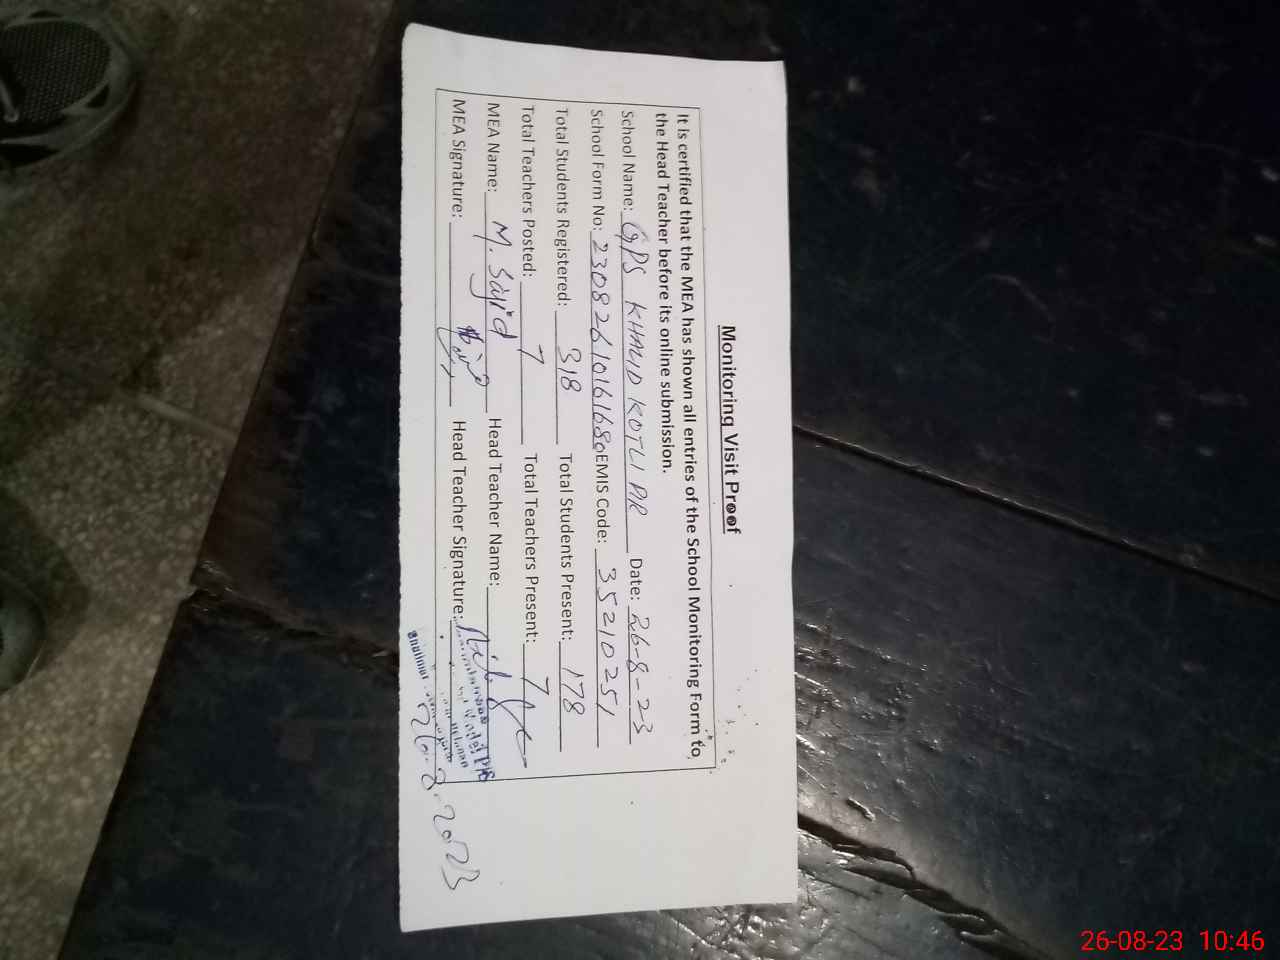 Monitoring Visit Proof
It is certified that the MEA has shown all entries of the School Monitoring Form to
the Head Teacher before its online submission.
School Name: GPS KHALID KOTLI PIR Date: 26-8-23
School Form No: 23082610161680 EMIS Code: 35210251
Total Students Registered: 318 Total Students Present: 178
Total Teachers Posted: 7 Total Teachers Present: 7
MEA Name: M. Sajid Head Teacher Name:
MEA Signature: Head Teacher Signature:
26-8-2023
26-08-23 10:46